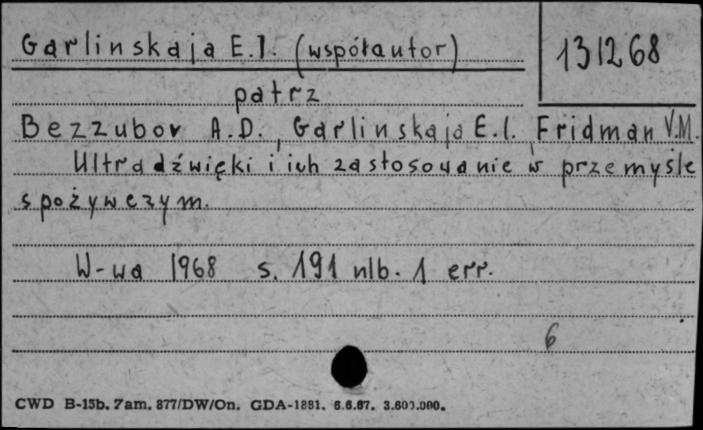 Garlinskaja E.I. (współautor)
131268
patrz
Bezzubov A.D., Garlinskaja E.I., Fridman V.M.
Ultradźwięki i ich zastosowanie w przemyśle
spożywczym.
W-wa 1968 s. 191 nlb. 1 err.
6
CWD B-15b. Zam. 877/DW/On. GDA-1881. 6.6.67. 3.600.000.